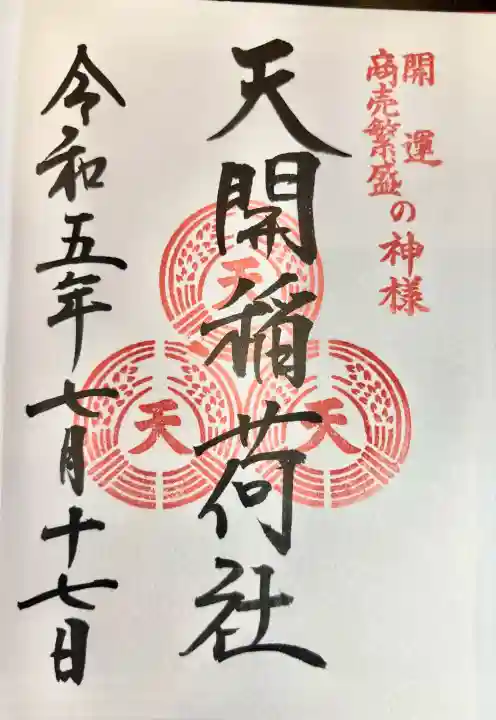 開運
商売繁盛
の神様
天開稲荷社
天
天
天
令和五年七月十七日